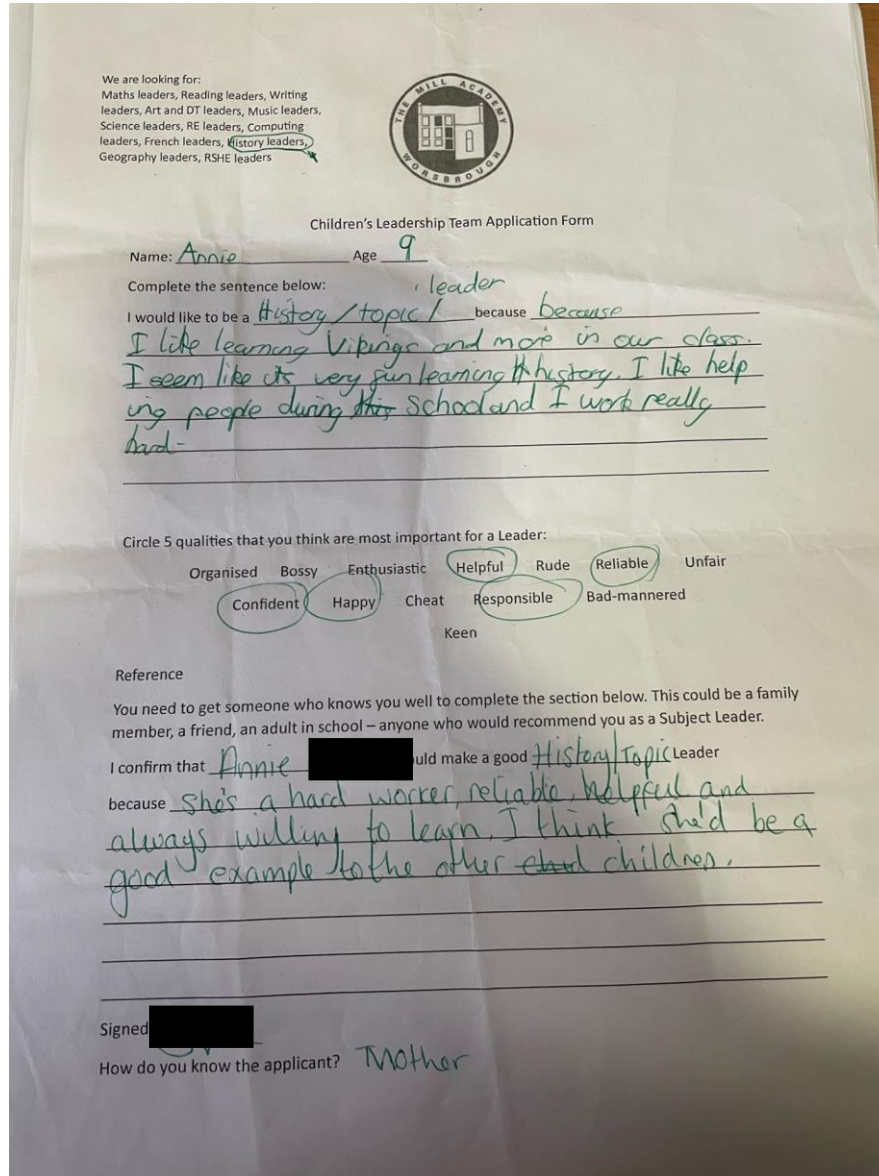 We are looking for:
Maths leaders, Reading leaders, Writing
leaders, Art and DT leaders, Music leaders,
Science leaders, RE leaders, Computing
leaders, French leaders, History leaders,
Geography leaders, RSHE leaders
THE MILL ACADEMY
WORSBROUGH
Children's Leadership Team Application Form
Name: Annie Age 9
Complete the sentence below:
I would like to be a History / topic / leader because because
I like learning Vikings and more in our class.
I seem like its very fun learning history. I like help
ing people during this school and I work really
hard-
Circle 5 qualities that you think are most important for a Leader:
Organised Bossy Enthusiastic Helpful Rude Reliable Unfair
Confident Happy Cheat Responsible Bad-mannered
Keen
Reference
You need to get someone who knows you well to complete the section below. This could be a family
member, a friend, an adult in school – anyone who would recommend you as a Subject Leader.
I confirm that Annie uld make a good History/Topic Leader
because She's a hard worker, reliable, helpful and
always willing to learn. I think she'd be a
good example to the other children.
Signed
How do you know the applicant? Mother